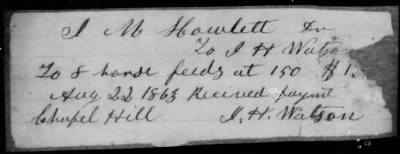 J M Howlett Dr
To J H Wats
To 8 horse feeds at 150 $1.
Aug 22 1863 Recived paymt
Chapel Hill J. H. Watson